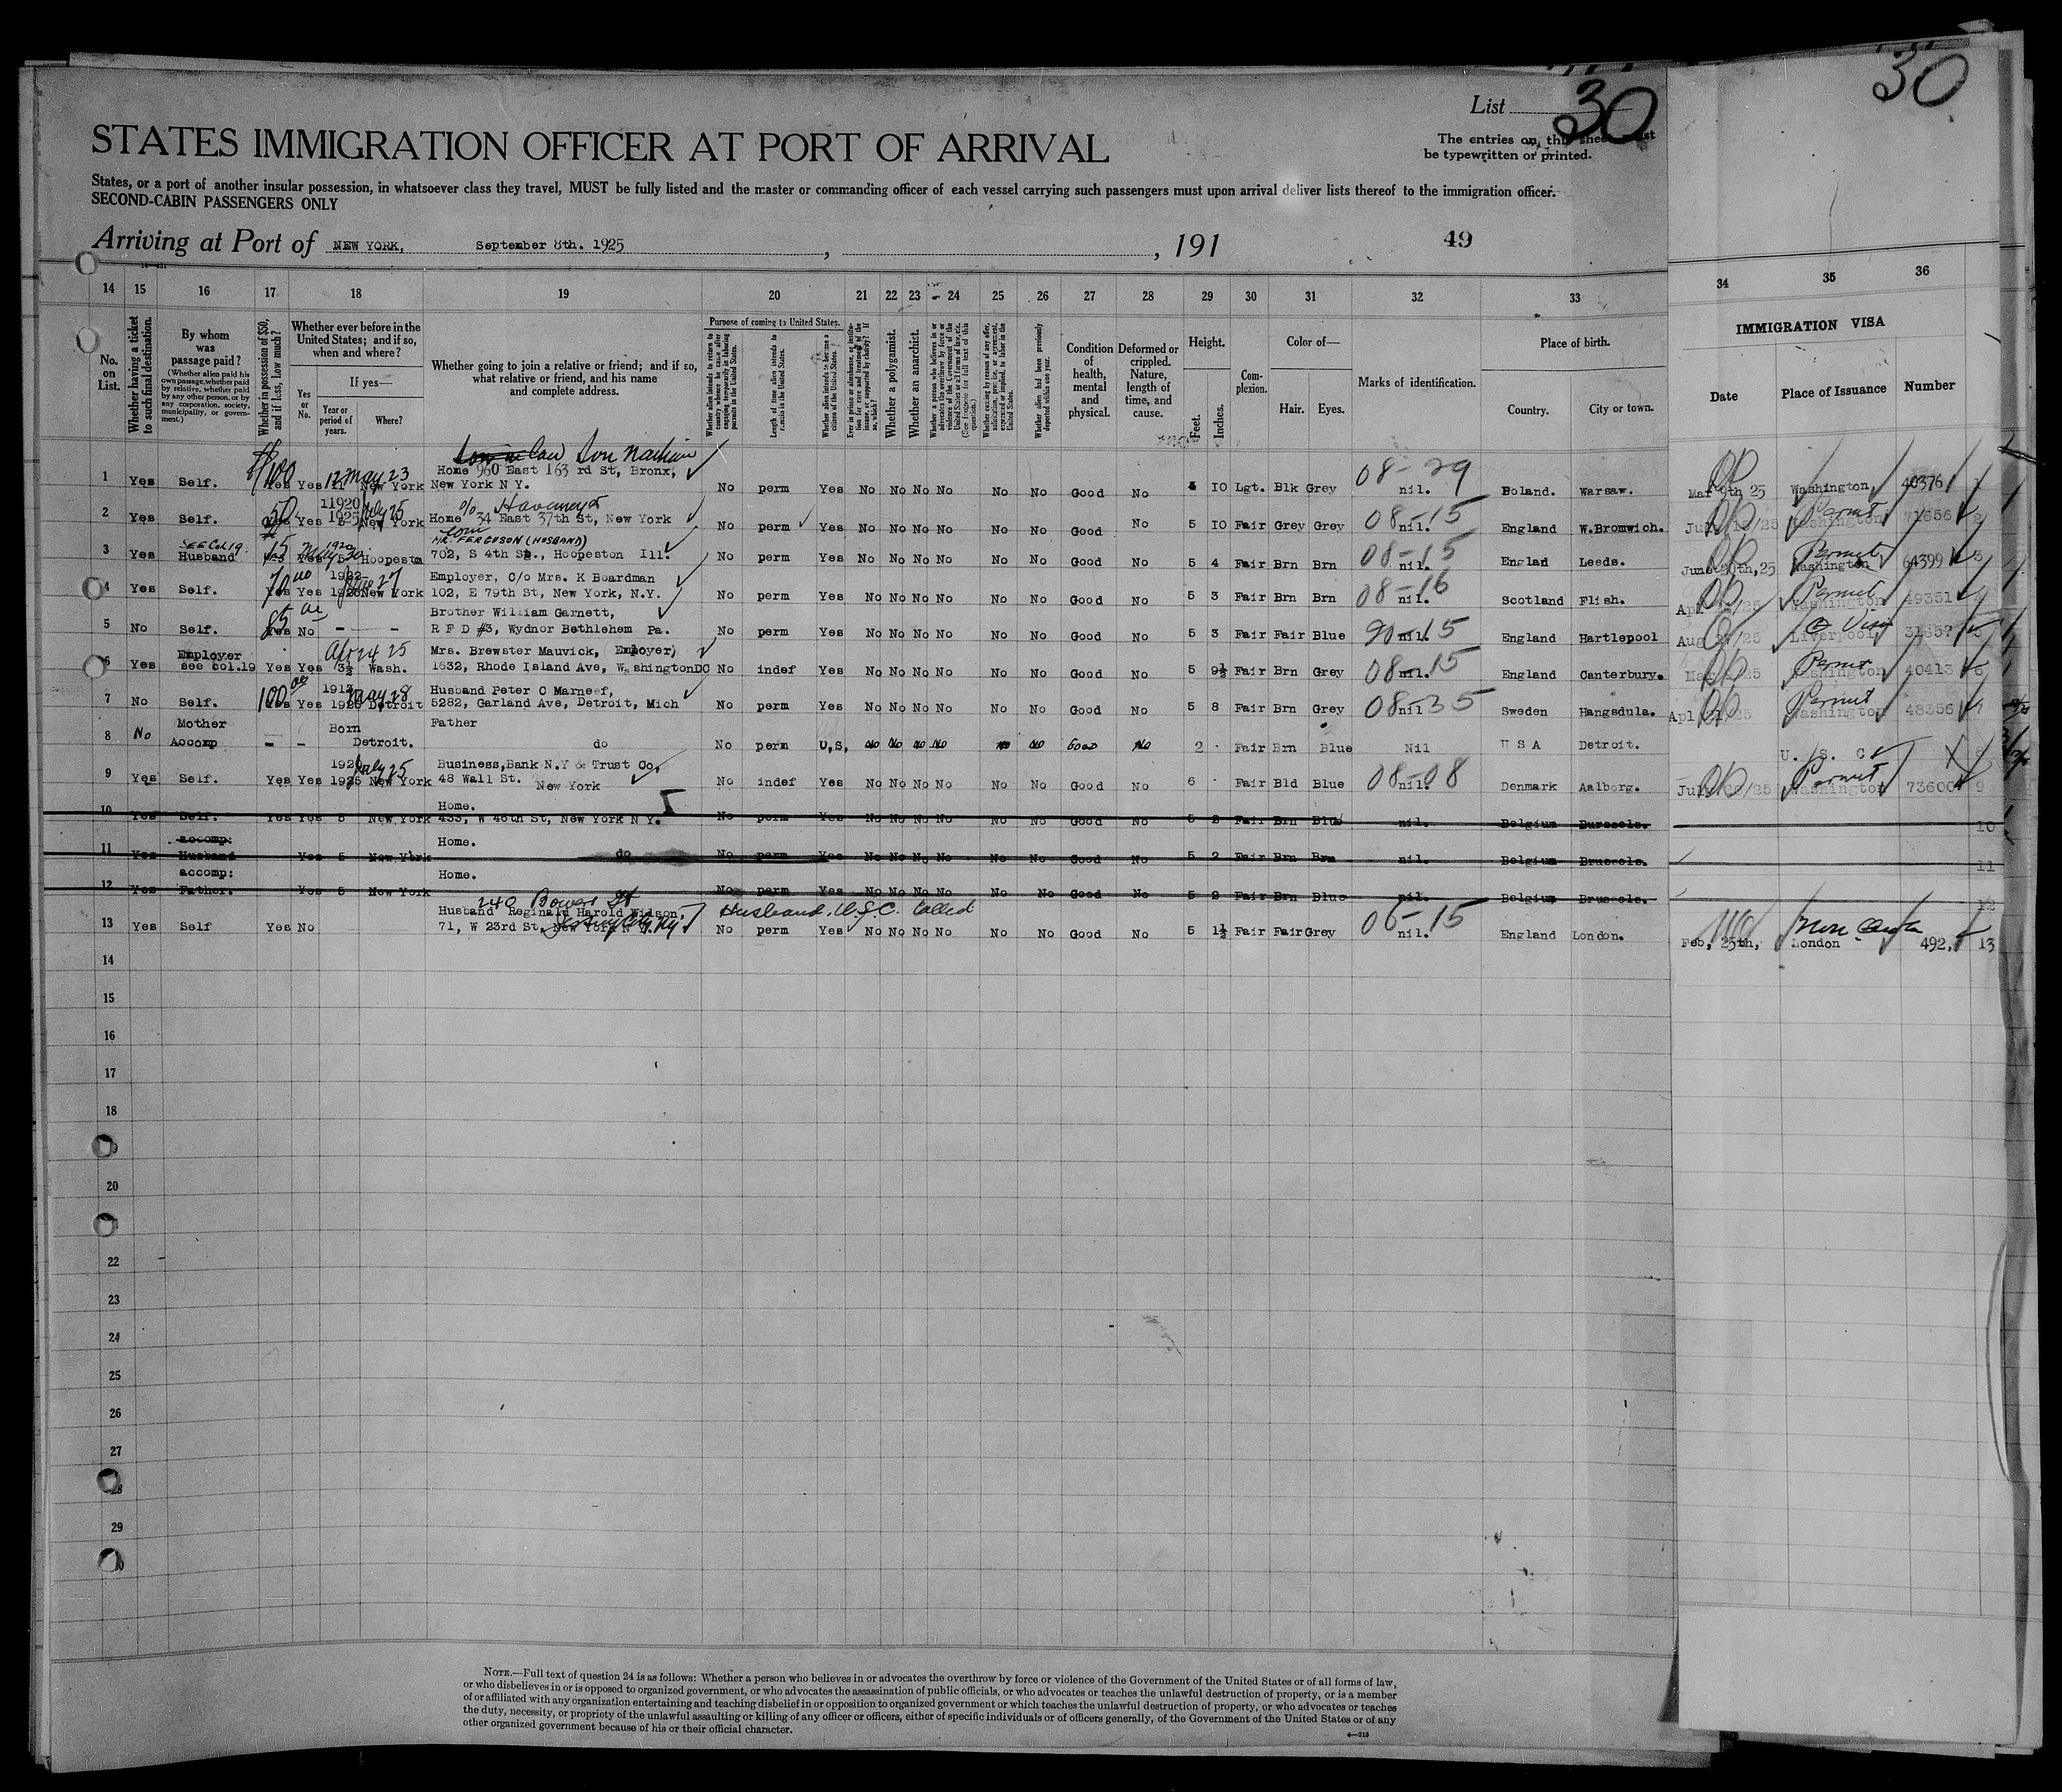 30
30
List
The entries on this sheet must
be typewritten or printed.
STATES IMMIGRATION OFFICER AT PORT OF ARRIVAL
States, or a port of another insular possession, in whatsoever class they travel, MUST be fully listed and the master or commanding officer of each vessel carrying such passengers must upon arrival deliver lists thereof to the immigration officer.
SECOND-CABIN PASSENGERS ONLY
Arriving at Port of NEW YORK, September 8th. 1925, , 191 49
14 15 16 17 18 19 20 21 22 23 24 25 26 27 28 29 30 31 32 33 34 35 36
No. on List.
Whether having a ticket to such final destination.
By whom was passage paid?
(Whether alien paid his own passage, whether paid by relative, whether paid by any other person, or by any corporation, society, municipality, or government.)
Whether in possession of $50, and if less, how much?
Whether ever before in the United States; and if so, when and where?
Yes or No.
If yes—
Year or period of years.
Where?
Whether going to join a relative or friend; and if so, what relative or friend, and his name and complete address.
Purpose of coming to United States.
Length of time alien intends to remain in the United States.
Whether alien intends to become a citizen of the United States.
Whether a polygamist.
Whether an anarchist.
Whether alien had been previously deported within one year.
Condition of health, mental and physical.
Deformed or crippled. Nature, length of time, and cause.
Height.
Feet.
Inches.
Complexion.
Color of—
Hair. Eyes.
Marks of identification.
Place of birth.
Country. City or town.
IMMIGRATION VISA
Date Place of Issuance Number
Son in law Son
$100 12 May 23 Home 960 East 163 rd St, Bronx, 08-29
1 Yes Self. Yes Yes 11 New York New York N Y. No perm Yes No No No No No No Good No 5 10 Lgt. Blk Grey nil. Poland. Warsaw. Mar 9th 25 Washington 40376
50 1920 July 25 c/o Havemeyer
2 Yes Self. Yes Yes 1925 New York Home 34 East 37th St, New York No perm Yes No No No No No No Good No 5 10 Fair Grey Grey 08-15 nil. England W.Bromwich. Permit Washington 71656 2
SEE Col 19. 15 MR. FERGUSON (HUSBAND)
3 Yes Husband Yes Yes 5 Hoopeston 702, S 4th St., Hoopeston Ill. No perm Yes No No No No No No Good No 5 4 Fair Brn Brn 08-15 nil. Englad Leeds. Permit Washington 64399 3
70 00 1922 June 27 Employer, C/o Mrs. K Boardman
4 Yes Self. Yes Yes New York 102, E 79th St, New York, N.Y. No perm Yes No No No No No No Good No 5 3 Fair Brn Brn 08-16 nil. Scotland Flish. Permit Washington 49351 4
85 Brother William Garnett,
5 No Self. Yes No - - R F D #3, Wydnor Bethlehem Pa. No perm Yes No No No No No No Good No 5 3 Fair Fair Blue 90-15 nil. England Hartlepool Visa Liverpool 5
Employer Apr 24 25 Mrs. Brewster Mauvick, (Employer)
6 Yes see col.19 Yes Yes 3½ Wash. 1632, Rhode Island Ave, WashingtonDC No indef Yes No No No No No No Good No 5 9½ Fair Brn Grey 08-15 nil. England Canterbury. Permit Washington 40413 6
100 00 1912 May 28 Husband Peter C Marneef,
7 No Self. Yes Yes 1925 Detroit 5282, Garland Ave, Detroit, Mich No perm Yes No No No No No No Good No 5 8 Fair Brn Grey 08-35 nil Sweden Hangsdula. Permit Washington 48356 7
Mother Born Father
8 No Accomp - - Detroit. do No perm U,S, No No No No No No Good No 2 Fair Brn Blue Nil U S A Detroit. U. S. C
July 25 Business,Bank N.Y & Trust Co,
9 Yes Self. Yes Yes New York 48 Wall St. New York No indef Yes No No No No No No Good No 6 Fair Bld Blue 08-08 nil. Denmark Aalborg. Permit Washington 73600 9
Home.
10 Yes Self. Yes Yes 5 New York 433, W 46th St, New York N Y. No perm Yes No No No No No No Good No 5 2 Fair Brn Blue nil. Belgium Burssels. 10
accomp: Home.
11 Yes Husband Yes 5 New York do No perm Yes No No No No No No Good No 5 2 Fair Brn Brn nil. Belgium Brussels. 11
accomp: Home.
12 Yes Father. Yes 5 New York No perm Yes No No No No No No Good No 5 2 Fair Brn Blue nil. Belgium Brussels. 12
240 Bowers St Husband, U.S.C. Called
Husband Reginald Harold Wilson,
13 Yes Self Yes No 71, W 23rd St, New York N Y. No perm Yes No No No No No No Good No 5 1½ Fair Fair Grey 06-15 nil. England London. Feb, 25th, London Non Quota 492, 13
14
15
16
17
18
20
22
23
24
25
26
27
28
29
NOTE.—Full text of question 24 is as follows: Whether a person who believes in or advocates the overthrow by force or violence of the Government of the United States or of all forms of law,
or who disbelieves in or is opposed to organized government, or who advocates the assassination of public officials, or who advocates or teaches the unlawful destruction of property, or is a member
of or affiliated with any organization entertaining and teaching disbelief in or opposition to organized government or which teaches the unlawful destruction of property, or who advocates or teaches
the duty, necessity, or propriety of the unlawful assaulting or killing of any officer or officers, either of specific individuals or of officers generally, of the Government of the United States or of any
other organized government because of his or their official character.